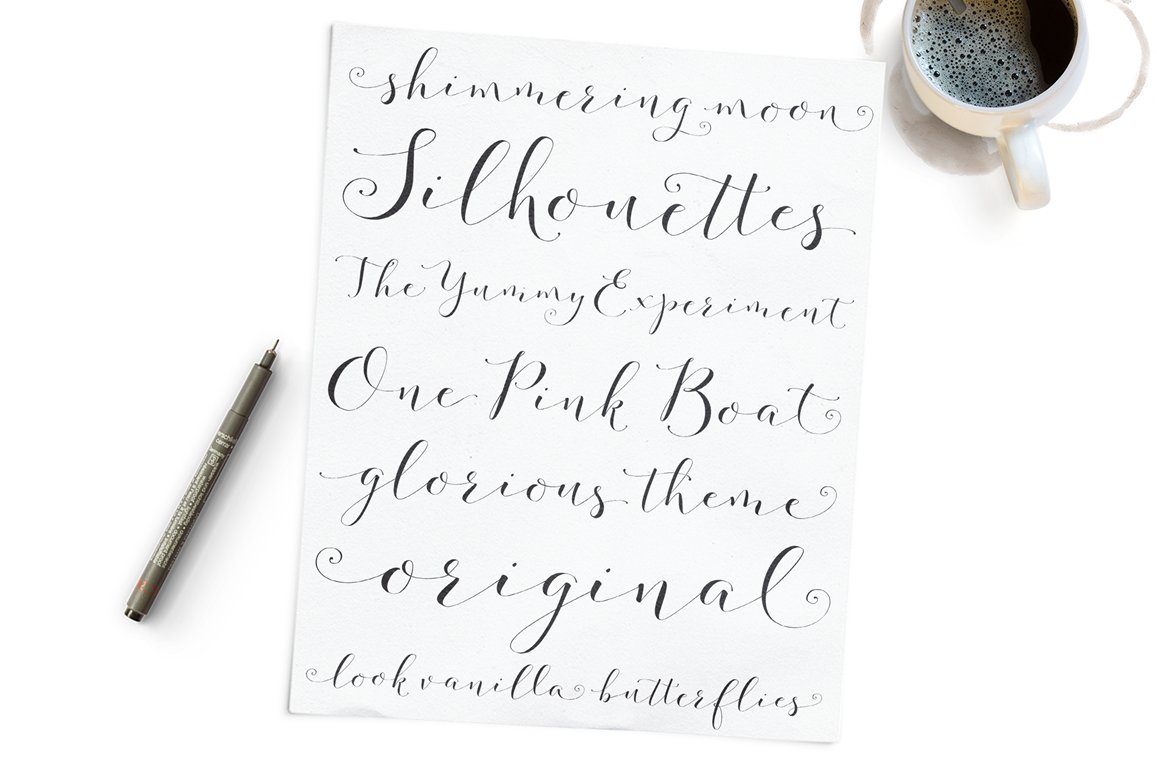 shimmering moon
Silhouettes
The Yummy Experiment
One Pink Boat
glorious theme
original
look vanilla butterflies